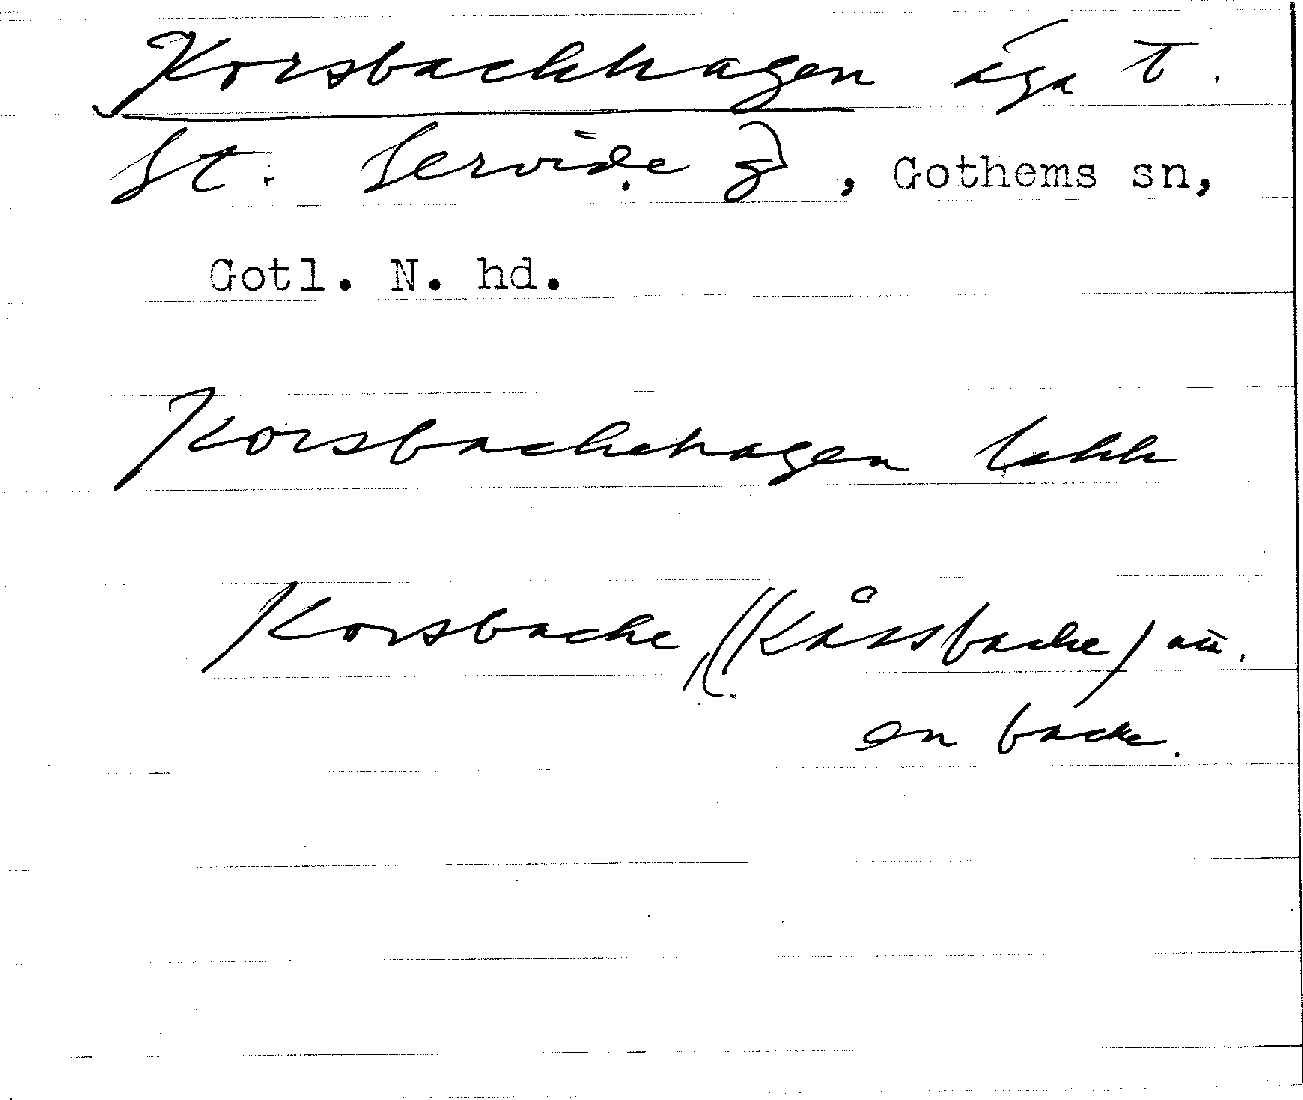 Korsbackhagen äga t.
St. Servide g, Gothems sn,
Gotl. N. hd.
Korsbackhagen
Korsbacke, (Kåssbacke)
en backe.